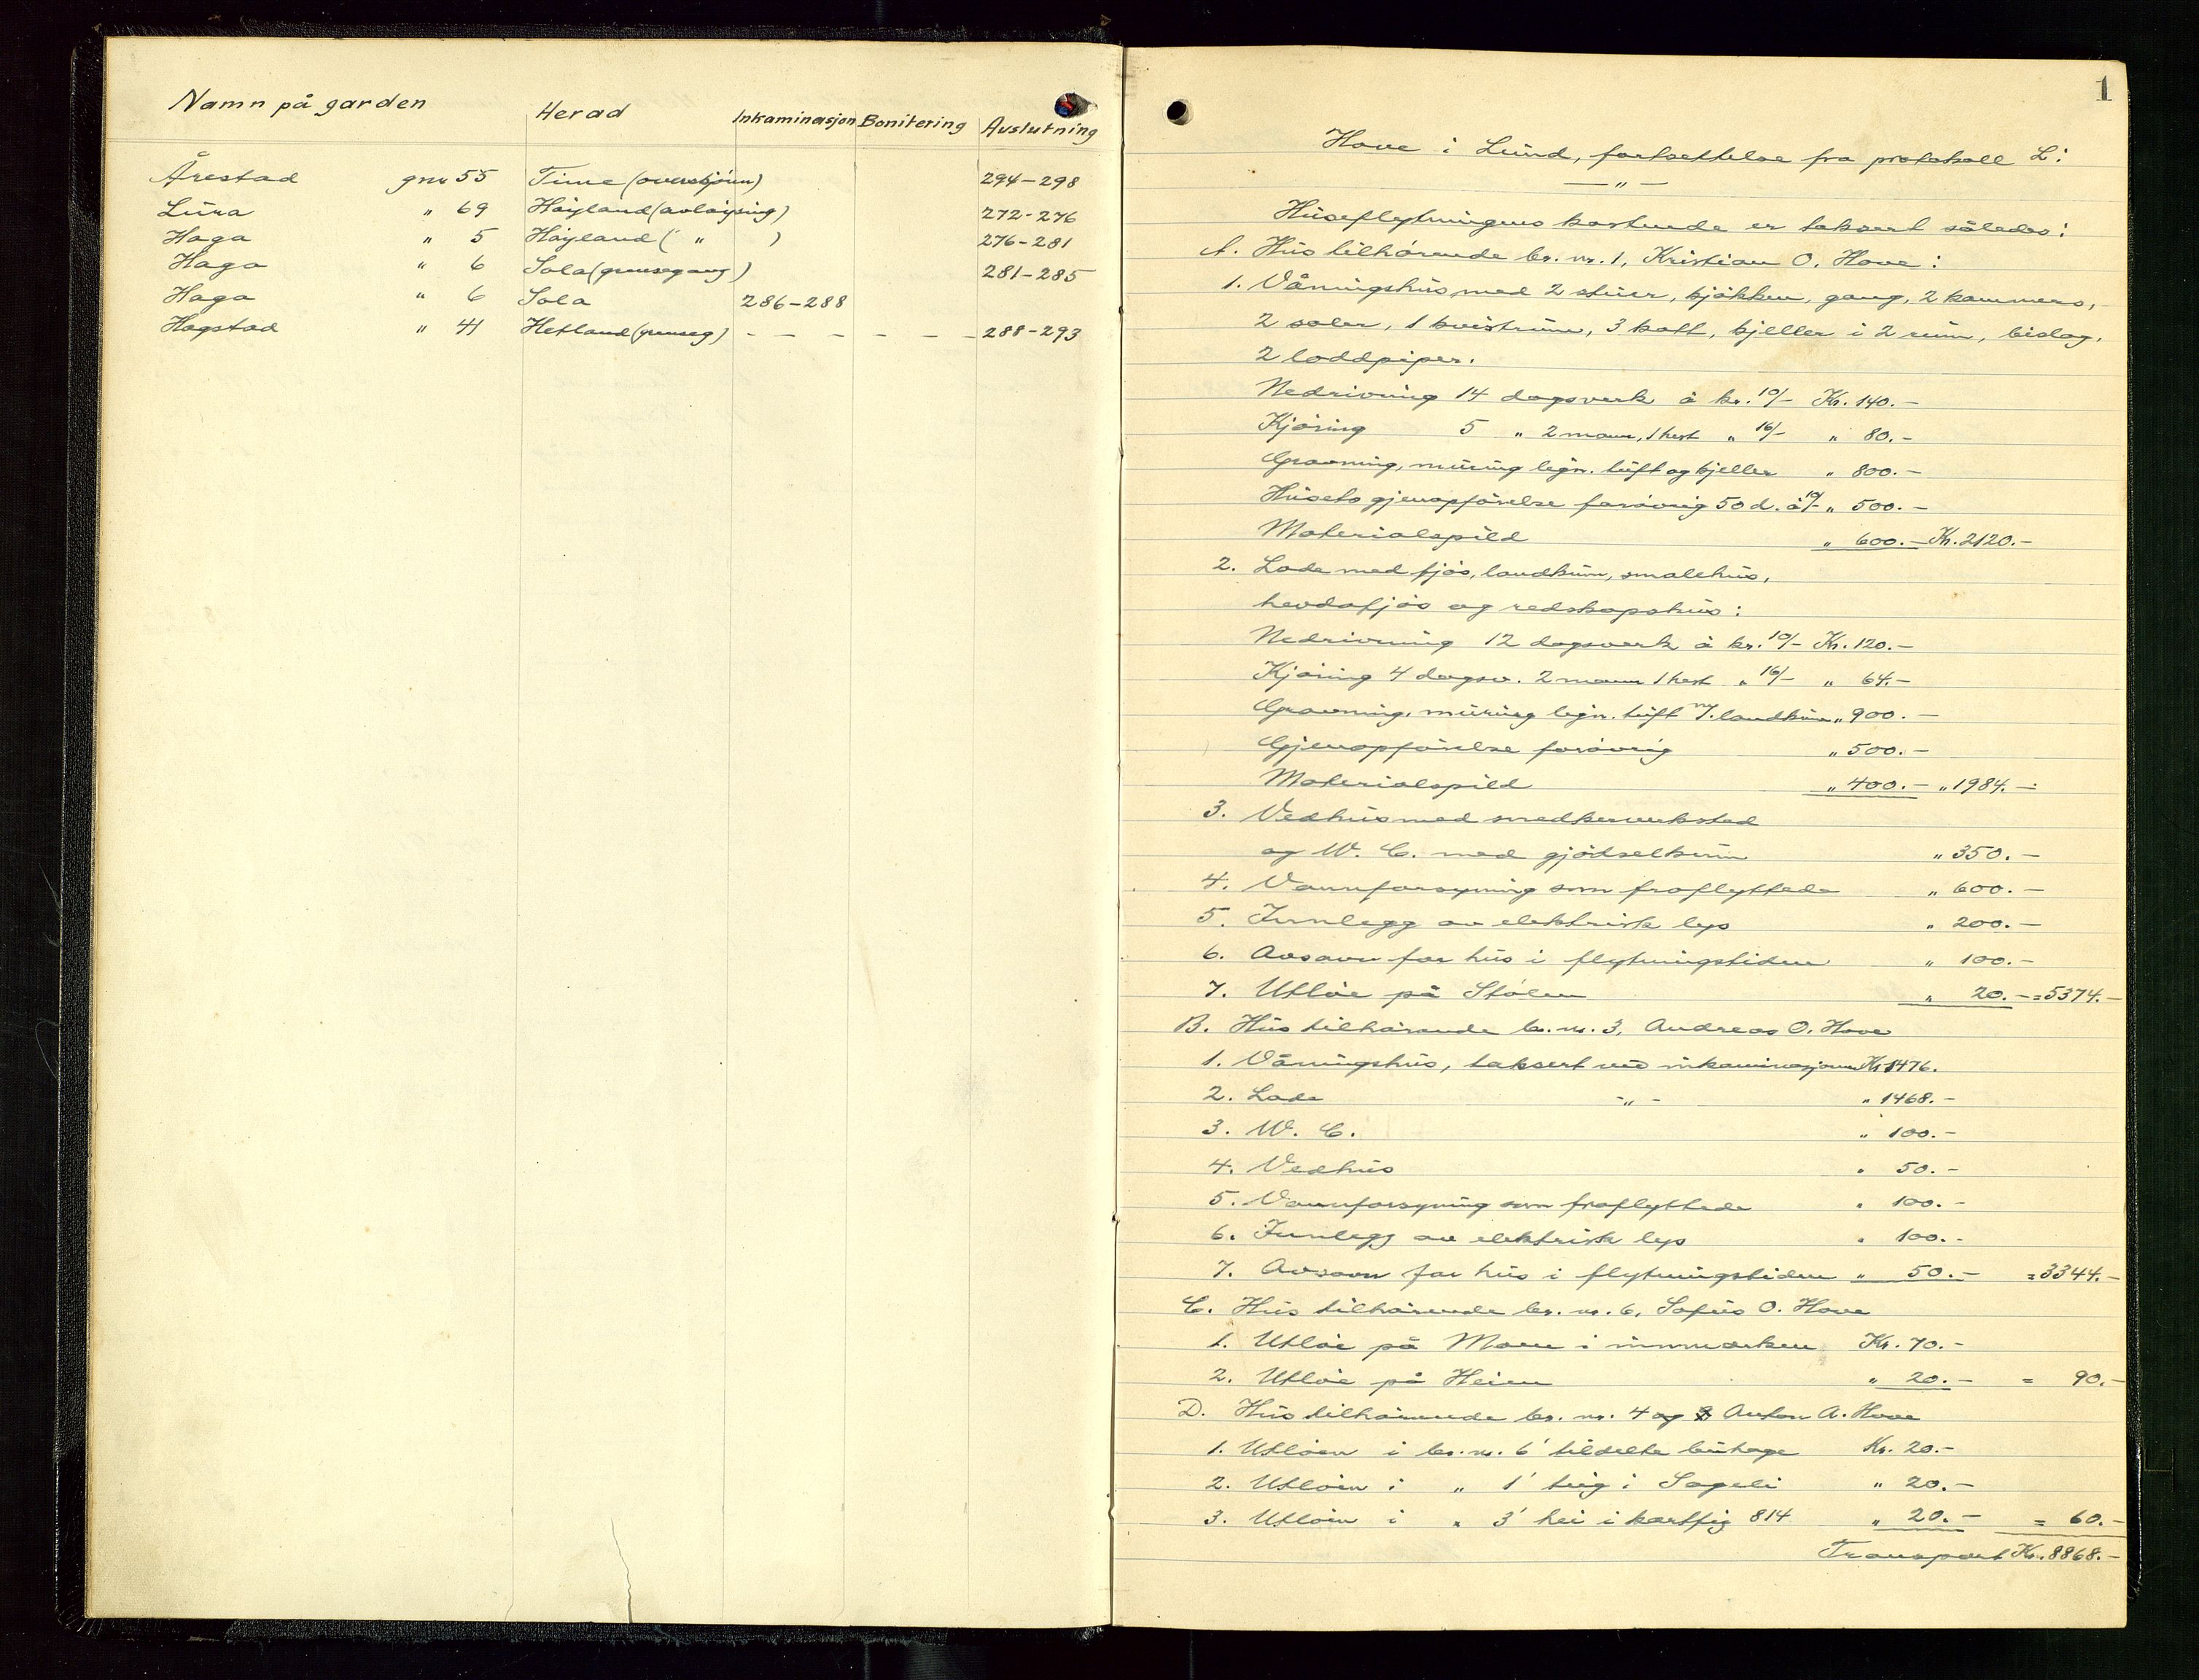 Namn på garden Herad Inkaminasjon Bonitering Avslutning
Årestad gnr 55 Time (overskjönn) 294-298
Lura " 69 Höyland (avlöysing) 272-276
Haga " 5 Höyland ( " ) 276-281
Haga " 6 Sola (grensegang) 281-285
Haga " 6 Sola 286-288
Hogstad " 41 Hetland (grenseg) - - - - - - 288-293
1
Hove i Lund, fortsettelse fra protokoll L:
— " —
Huseflytningens kostende er taksert således:
A. Hus tilhörende br. nr. 1, Kristian O. Hove:
1. Våningshus med 2 stuer, kjökken, gang, 2 kammers,-
2 saler, 1 kvistrum, 3 kott, kjeller i 2 rum, bislag,
2 loddpiper.
Nedrivning 14 dagsverk à kr. 10/- Kr. 140.-
Kjöring 5 " 2 mann, 1 hest " 16/- " 80.-
Gravning, muring legn. tuft og kjeller " 800.-
Husets gjenopförelse forövrig 50 d. à 10/- " 500.-
Materialspild " 600.- Kr. 2120.-
2. Lade med fjös, landkum, smalehus,
hevdafjös og redskapshus:
Nedrivning 12 dagsverk à kr. 10/- Kr. 120.-
Kjöring 4 dagsv. 2 mann 1 hest " 16/- " 64.-
Gravning, muring legn. tuft m/. landkum " 900.-
Gjenopförelse forövrig " 500.-
Materialspild " 400.- " 1984.-
3. Vedhus med snedkerverksted
og W. C. med gjödselkum " 350.-
4. Vannforsyning som fraflyttede " 600.-
5. Innlegg av elektrisk lys " 200.-
6. Avsavn for hus i flytningstiden " 100.-
7. Utlöe på Stölen " 20.- = 5374.-
B. Hus tilhörende br. nr. 3, Andreas O. Hove
1. Våningshus, taksert ved inkaminasjonen Kr. 1476.
2. Lade -"- " 1468.-
3. W. C. " 100.-
4. Vedhus " 50.-
5. Vannforsyning som fraflyttede " 100.-
6. Innlegg av elektrisk lys " 100.-
7. Avsavn for hus i flytningstiden " 50.- = 3344.-
C. Hus tilhörende br. nr. 6, Sofus O. Hove
1. Utlöe på Moen i innmarken Kr. 70.-
2. Utlöe på Heien " 20.- = 90.-
D. Hus tilhörende br. nr. 4 og Anton A. Hove
1. Utlöen i br. nr. 6' tildelte buhage Kr. 20.-
2. Utlöen i " 1' teig i Sageli " 20.-
3. Utlöen i " 3' hei i kartfig 814 " 20.- = 60.-
Transport Kr. 8868.-